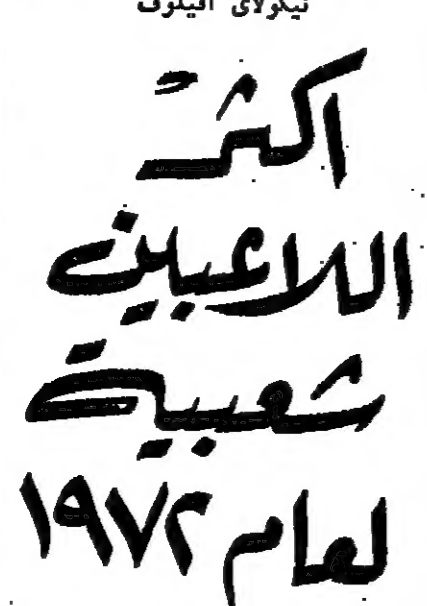 نيكولاي افيلوف
اكثر
اللاعبين
شعبية
لعام ١٩٧٢